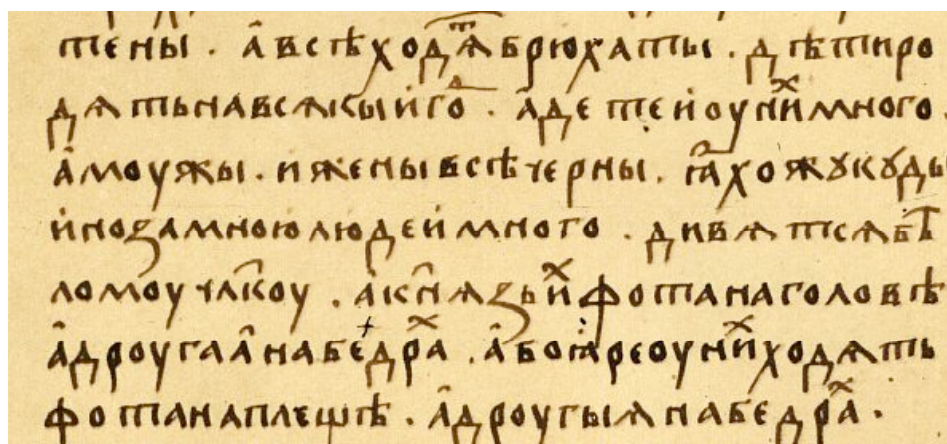 тены . а̂всѣходⷮѧбрюхаты . дѣтиро
дѧтьнавсѧкыйгоⷣ . а̂детейоунⷯимного .
а̂моужы . ижены всѣчерны . ꙗ̂хожꙋкꙋды
инозамноюлюдеймного . дивѧтсѧбѣ
ломоучлк҃оу . а̂кн҃ѧзьиⷯфотанаголовѣ
а̂дроугаа̂набедраⷯ . а̂боꙗ̂реоуниⷯходѧть
фотанаплещѣ . а̂дроугыѧнабедраⷯ .